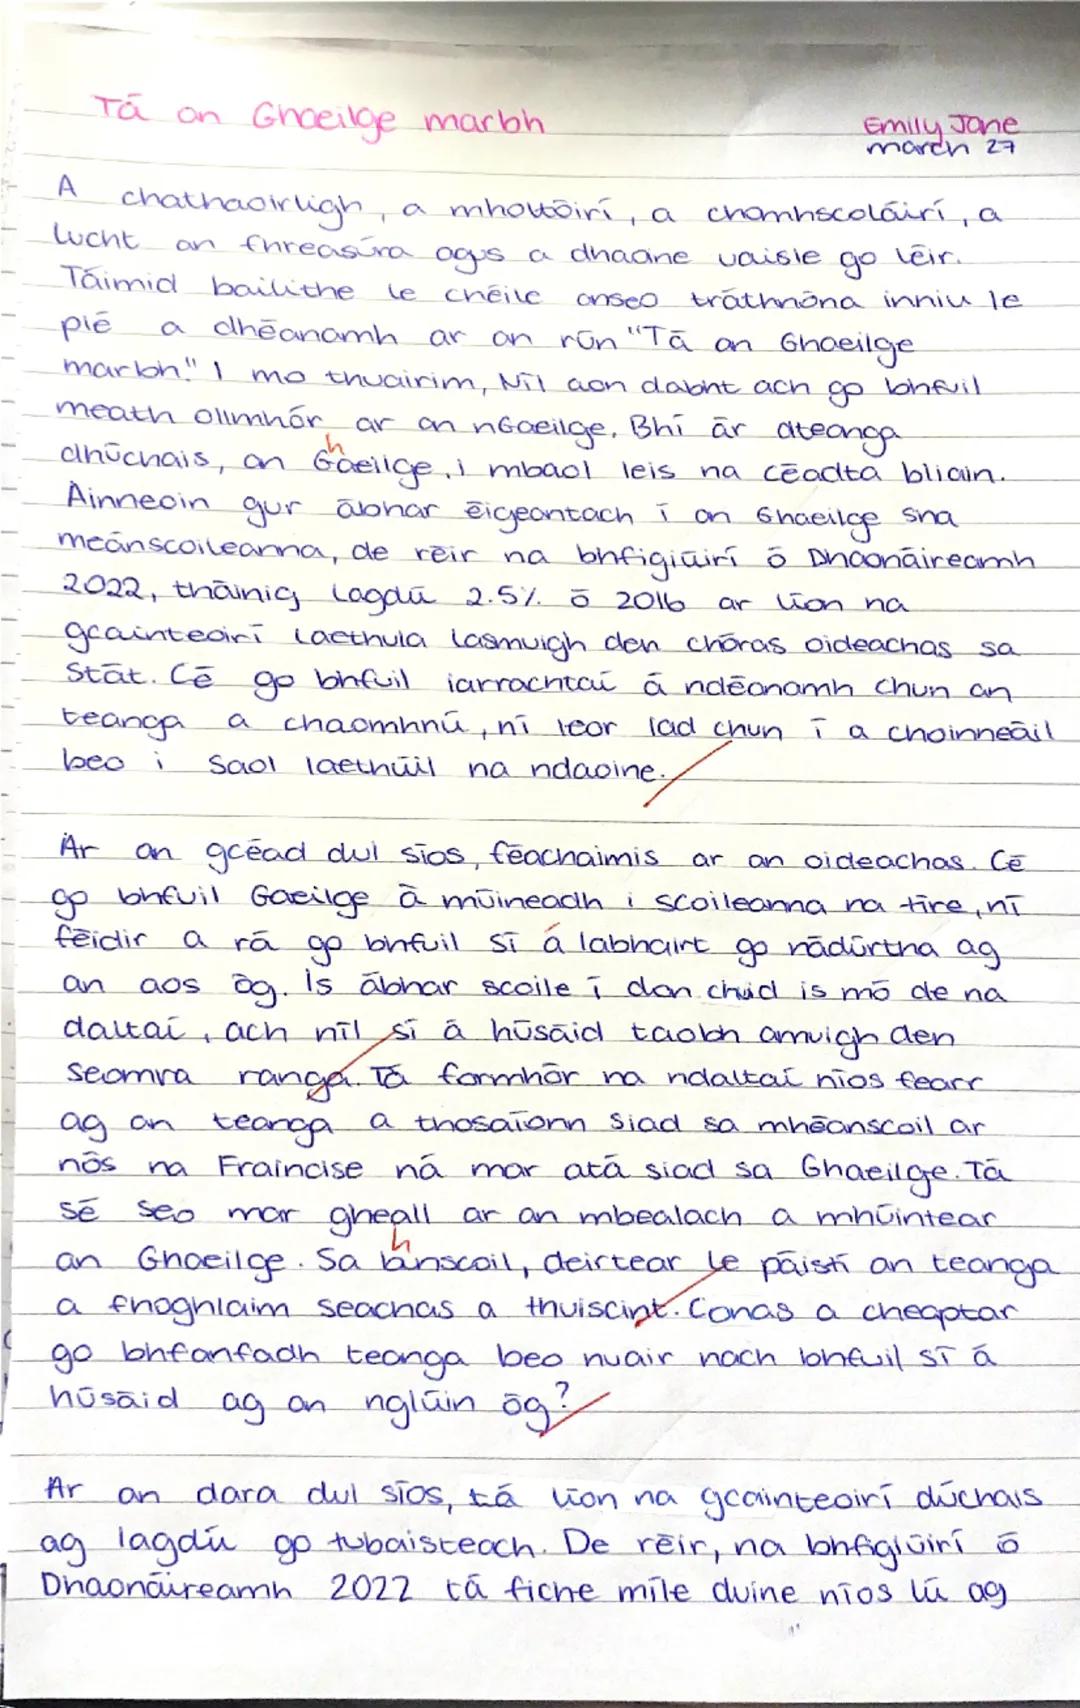 Tá an Ghaeilge marbh
Emily Jane
march 27
A chathaoirligh, a mholtóirí, a chomhscoláirí, a
lucht an fhreasúra agus a dhaoine uaisle go léir.
Táimid bailithe le chéile anseo tráthnóna inniu le
plé a dhéanamh ar an rún "Tá an Ghaeilge
marbh." I mo thuairim, Níl aon dabht ach go bhfuil
meath ollmhór ar an nGaeilge. Bhí ár dteanga
dhúchais, an Ghaeilge, i mbaol leis na céadta bliain.
Ainneoin gur ábhar éigeantach í an Ghaeilge sna
meánscoileanna, de réir na bhfigiúirí ó Dhaonáireamh
2022, tháinig lagdú 2.5% ó 2016 ar líon na
gcainteoirí laethula lasmuigh den chóras oideachas sa
Stát. Cé go bhfuil iarrachtaí á ndéanamh chun an
teanga a chaomhnú, ní leor iad chun í a choinneáil
beo i saol laethúil na ndaoine.
Ar an gcéad dul síos, féachaimis ar an oideachas. Cé
go bhfuil Gaeilge á múineadh i scoileanna na tíre, ní
féidir a rá go bhfuil sí á labhairt go nádúrtha ag
an aos óg. Is ábhar scoile í don chuid is mó de na
daltaí, ach níl sí á húsáid taobh amuigh den
seomra ranga. Tá formhór na ndaltaí níos fearr
ag an teanga a thosaíonn siad sa mheánscoil ar
nós na Fraincise ná mar atá siad sa Ghaeilge. Tá
sé seo mar gheall ar an mbealach a mhúintear
an Ghaeilge. Sa bhunscoil, deirtear le páistí an teanga
a fhoghlaim seachas a thuiscint. Conas a cheaptar
go bhfanfadh teanga beo nuair nach bhfuil sí á
húsáid ag an nglúin óg?
Ar an dara dul síos, tá líon na gcainteoirí dúchais
ag lagdú go tubaisteach. De réir, na bhfigiúirí ó
Dhaonáireamh 2022 tá fiche míle duine níos lú ag